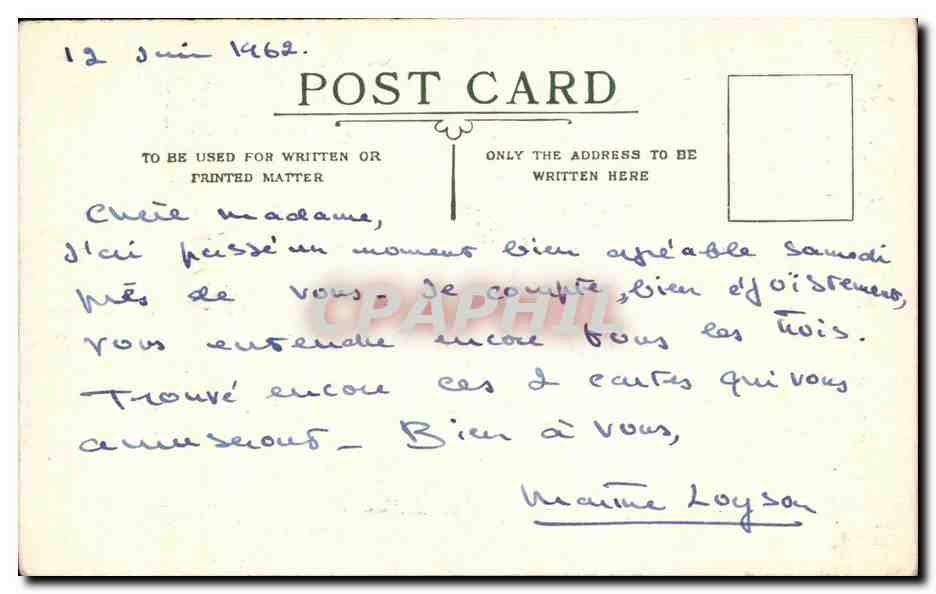 12 Juin 1962.
POST CARD
TO BE USED FOR WRITTEN OR
PRINTED MATTER
ONLY THE ADDRESS TO BE
WRITTEN HERE
Chère Madame,
J'ai passé un moment bien agréable samedi
près de vous. Je compte, bien égoïstement,
vous entendre encore tous les trois.
Trouvé encore ces 2 cartes qui vous
amuseront - Bien à vous,
Martine Loyson
CPAPHIL